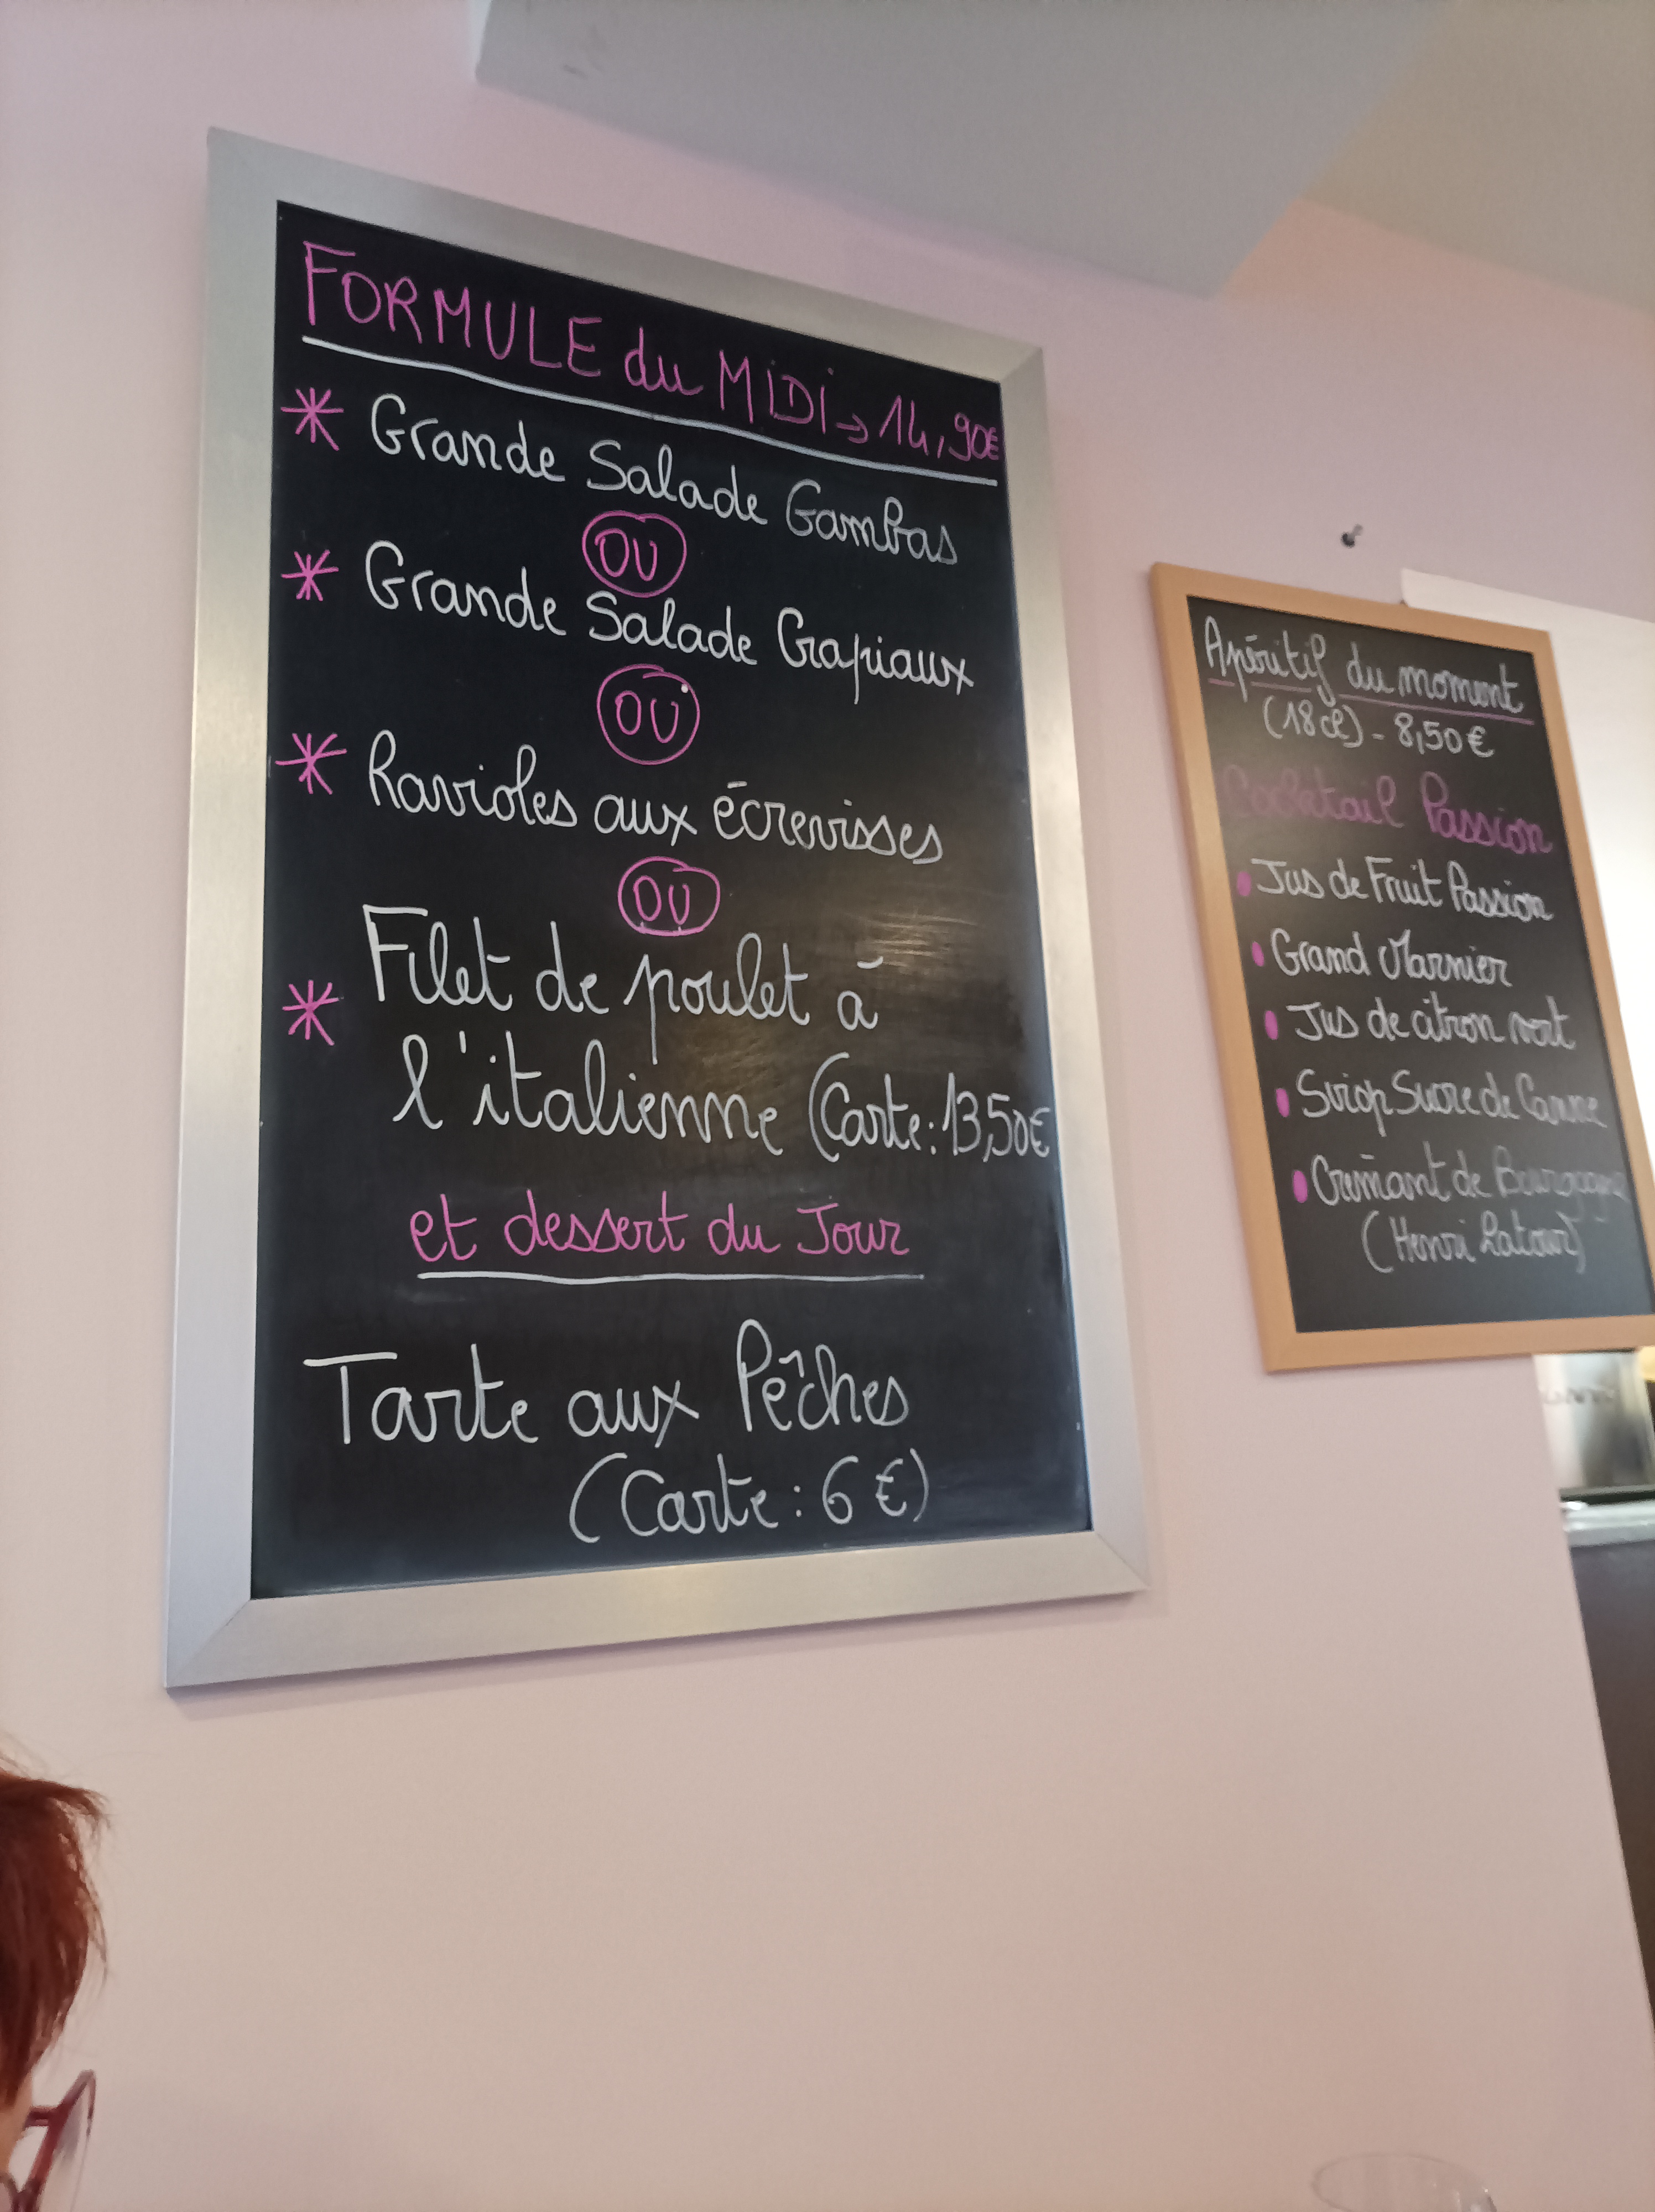 FORMULE du MIDI → 14,90€
* Grande Salade Gambas
OU
* Grande Salade Grapiaux
OU
* Ravioles aux écrevisses
OU
* Filet de poulet à
l'italienne (Carte: 13,50€
et dessert du Jour
Tarte aux Pêches
(Carte: 6 €)
Apéritif du moment
(18cl) - 8,50€
Cocktail Passion
Jus de Fruit Passion
Grand Marnier
Jus de citron vert
Sirop Sucre de Canne
Crémant de Bourgogne
(Henri Latour)